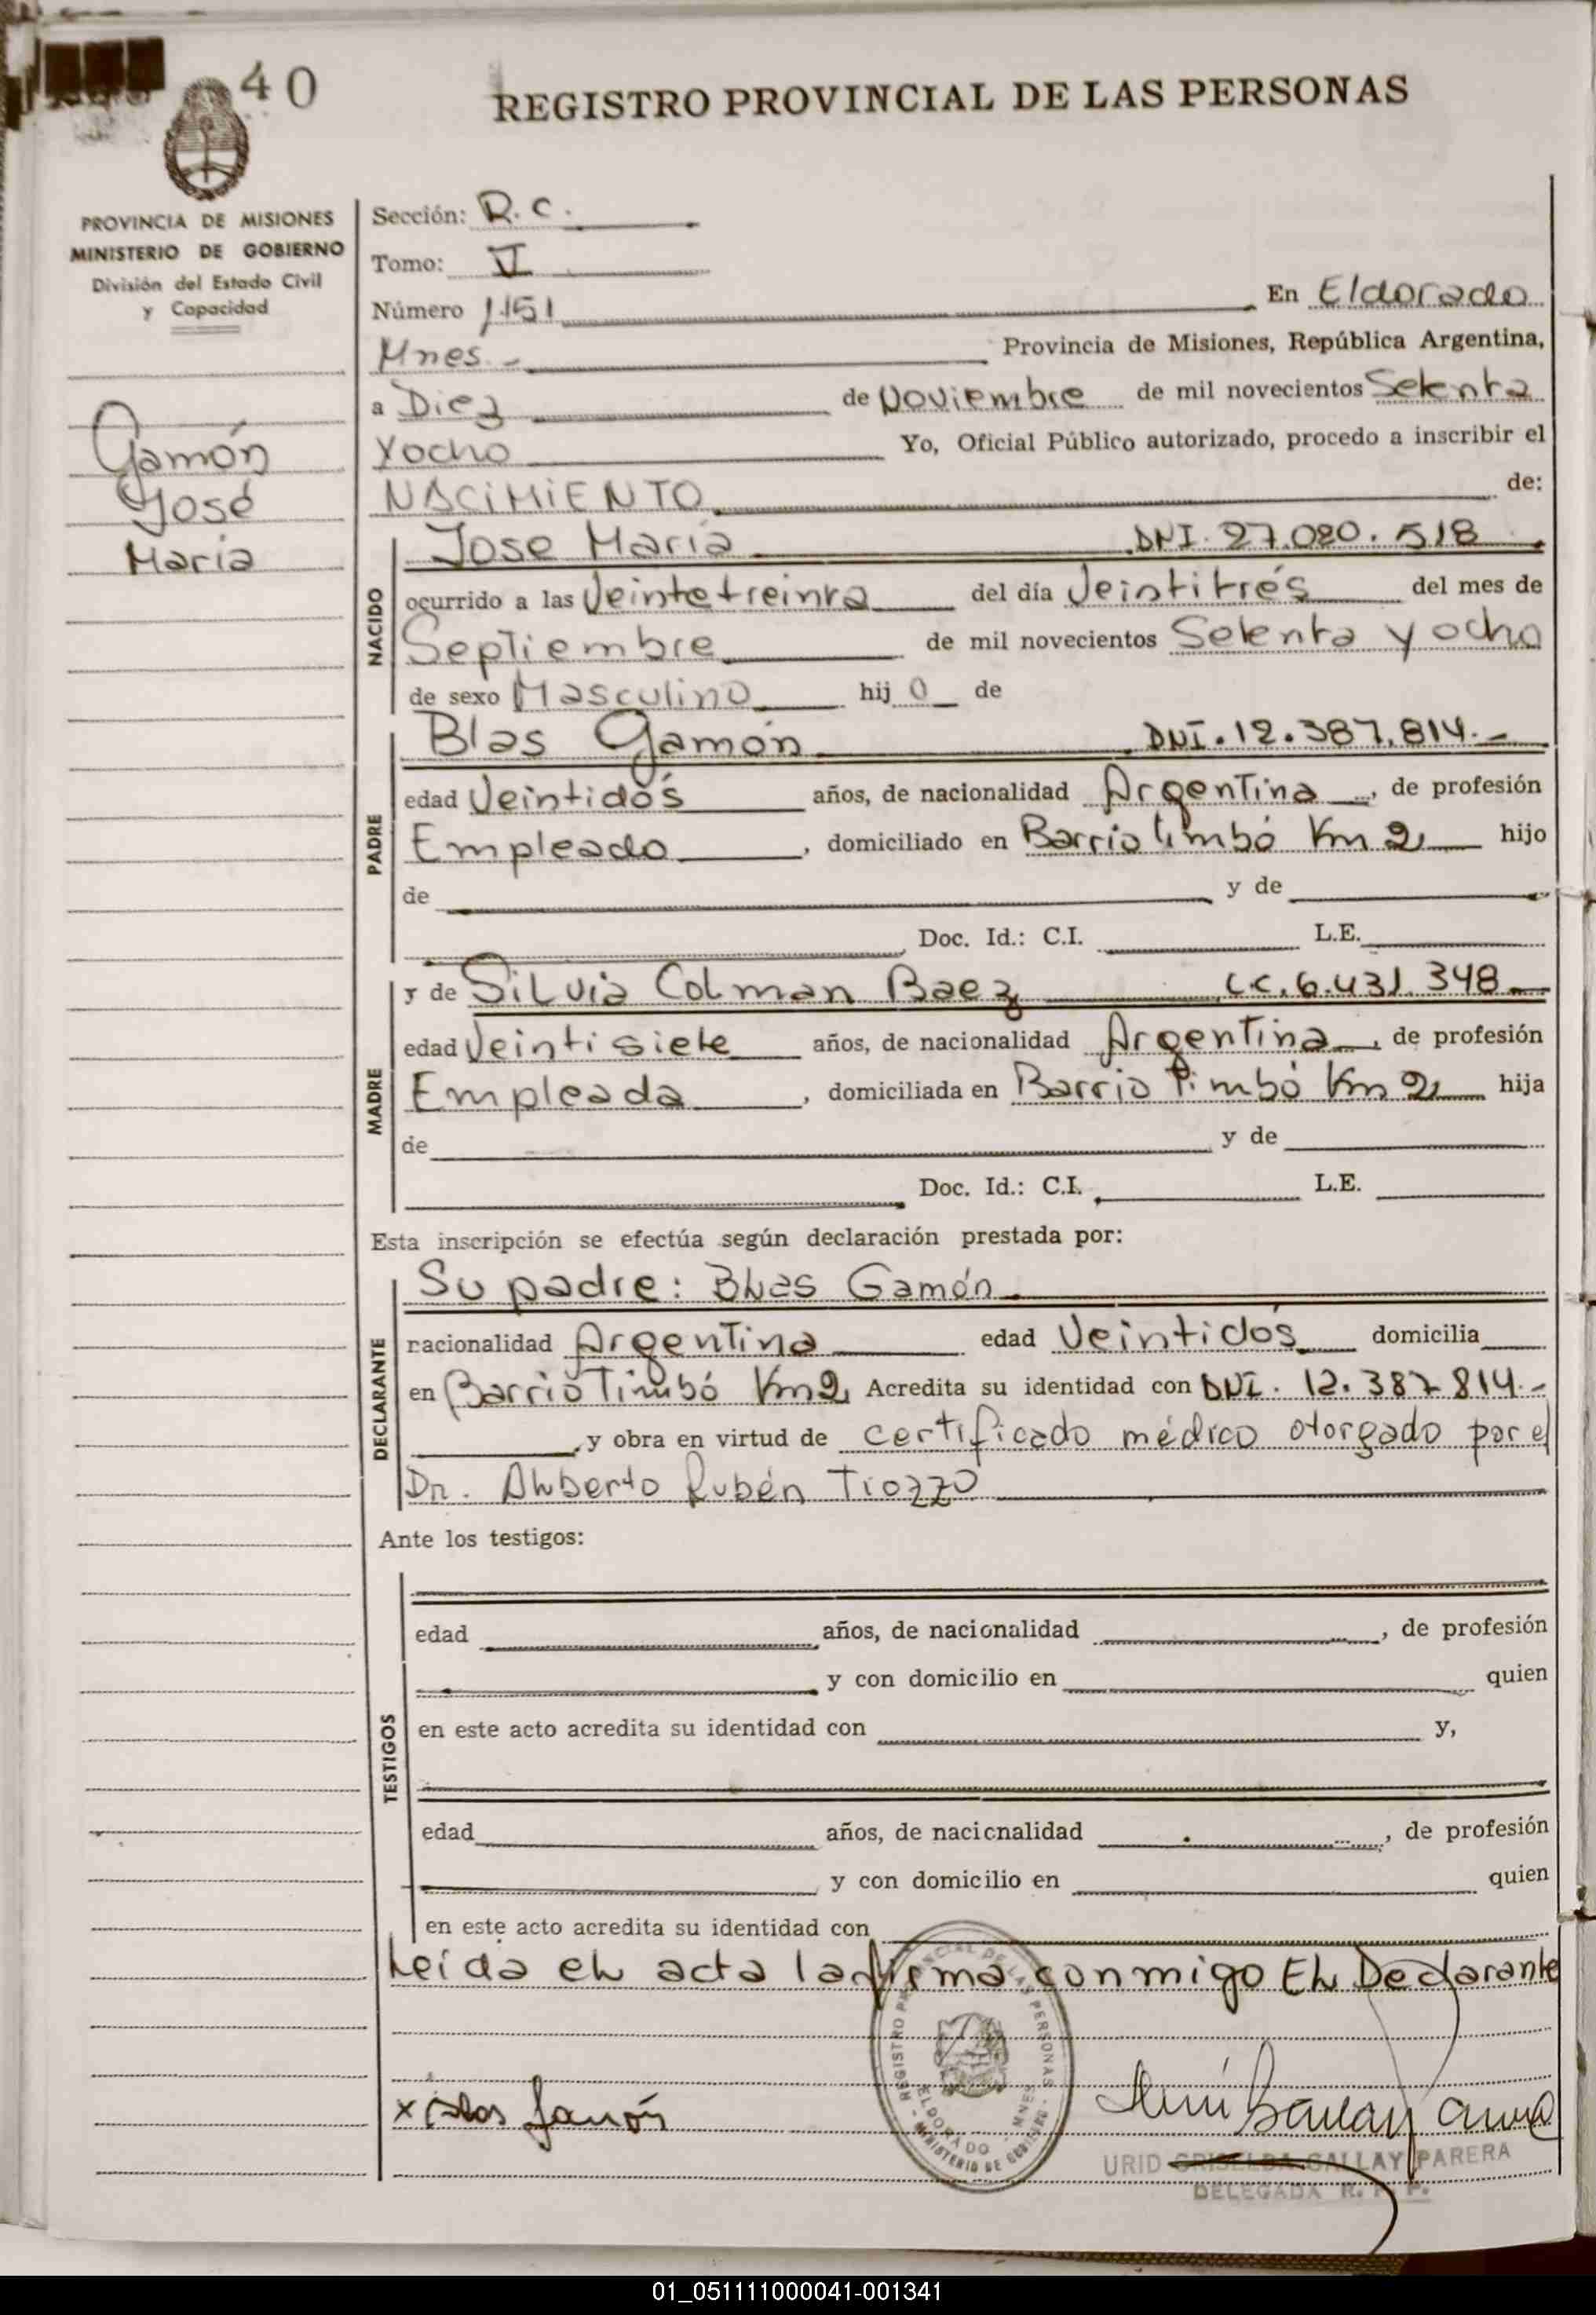 40
REGISTRO PROVINCIAL DE LAS PERSONAS
PROVINCIA DE MISIONES
MINISTERIO DE GOBIERNO
División del Estado Civil
y Capacidad
Gamón
José
María
Sección: R.C.
Tomo: V
Número 1151 En Eldorado
Mnes.- Provincia de Misiones, República Argentina,
a Diez de Noviembre de mil novecientos Setenta
Yocho Yo, Oficial Público autorizado, procedo a inscribir el
NACIMIENTO de:
NACIDO
Jose María DNI. 27.080.518
ocurrido a las Veinte treinta del día Veintitrés del mes de
Septiembre de mil novecientos Setenta y ocho
de sexo Masculino hij o de
PADRE
Blas Gamón DNI. 12.387.814.-
edad Veintidós años, de nacionalidad Argentina, de profesión
Empleado, domiciliado en Barrio Timbó Km 2 hijo
de y de
Doc. Id.: C.I. L.E.
MADRE
y de Silvia Colman Baez L.C. 6.431.348.-
edad Veintisiete años, de nacionalidad Argentina, de profesión
Empleada, domiciliada en Barrio Timbó Km 2 hija
de y de
Doc. Id.: C.I. L.E.
Esta inscripción se efectúa según declaración prestada por:
DECLARANTE
Su padre: Blas Gamón
nacionalidad Argentina edad Veintidós domicilia
en Barrio Timbó Km 2, Acredita su identidad con DNI. 12.387.814.-
y obra en virtud de certificado médico otorgado por el
Dr. Alberto Rubén Tiozzo
Ante los testigos:
TESTIGOS
edad años, de nacionalidad , de profesión
y con domicilio en quien
en este acto acredita su identidad con y,
edad años, de nacionalidad , de profesión
y con domicilio en quien
en este acto acredita su identidad con
Leída el acta la firma conmigo El Declarante
x Blas Gamón
REGISTRO PROVINCIAL DE LAS PERSONAS
ELDORADO - MNES
- MINISTERIO DE GOBIERNO -
URID GRISELDA GALLAY PARERA
DELEGADA R. P. P.
01_051111000041-001341